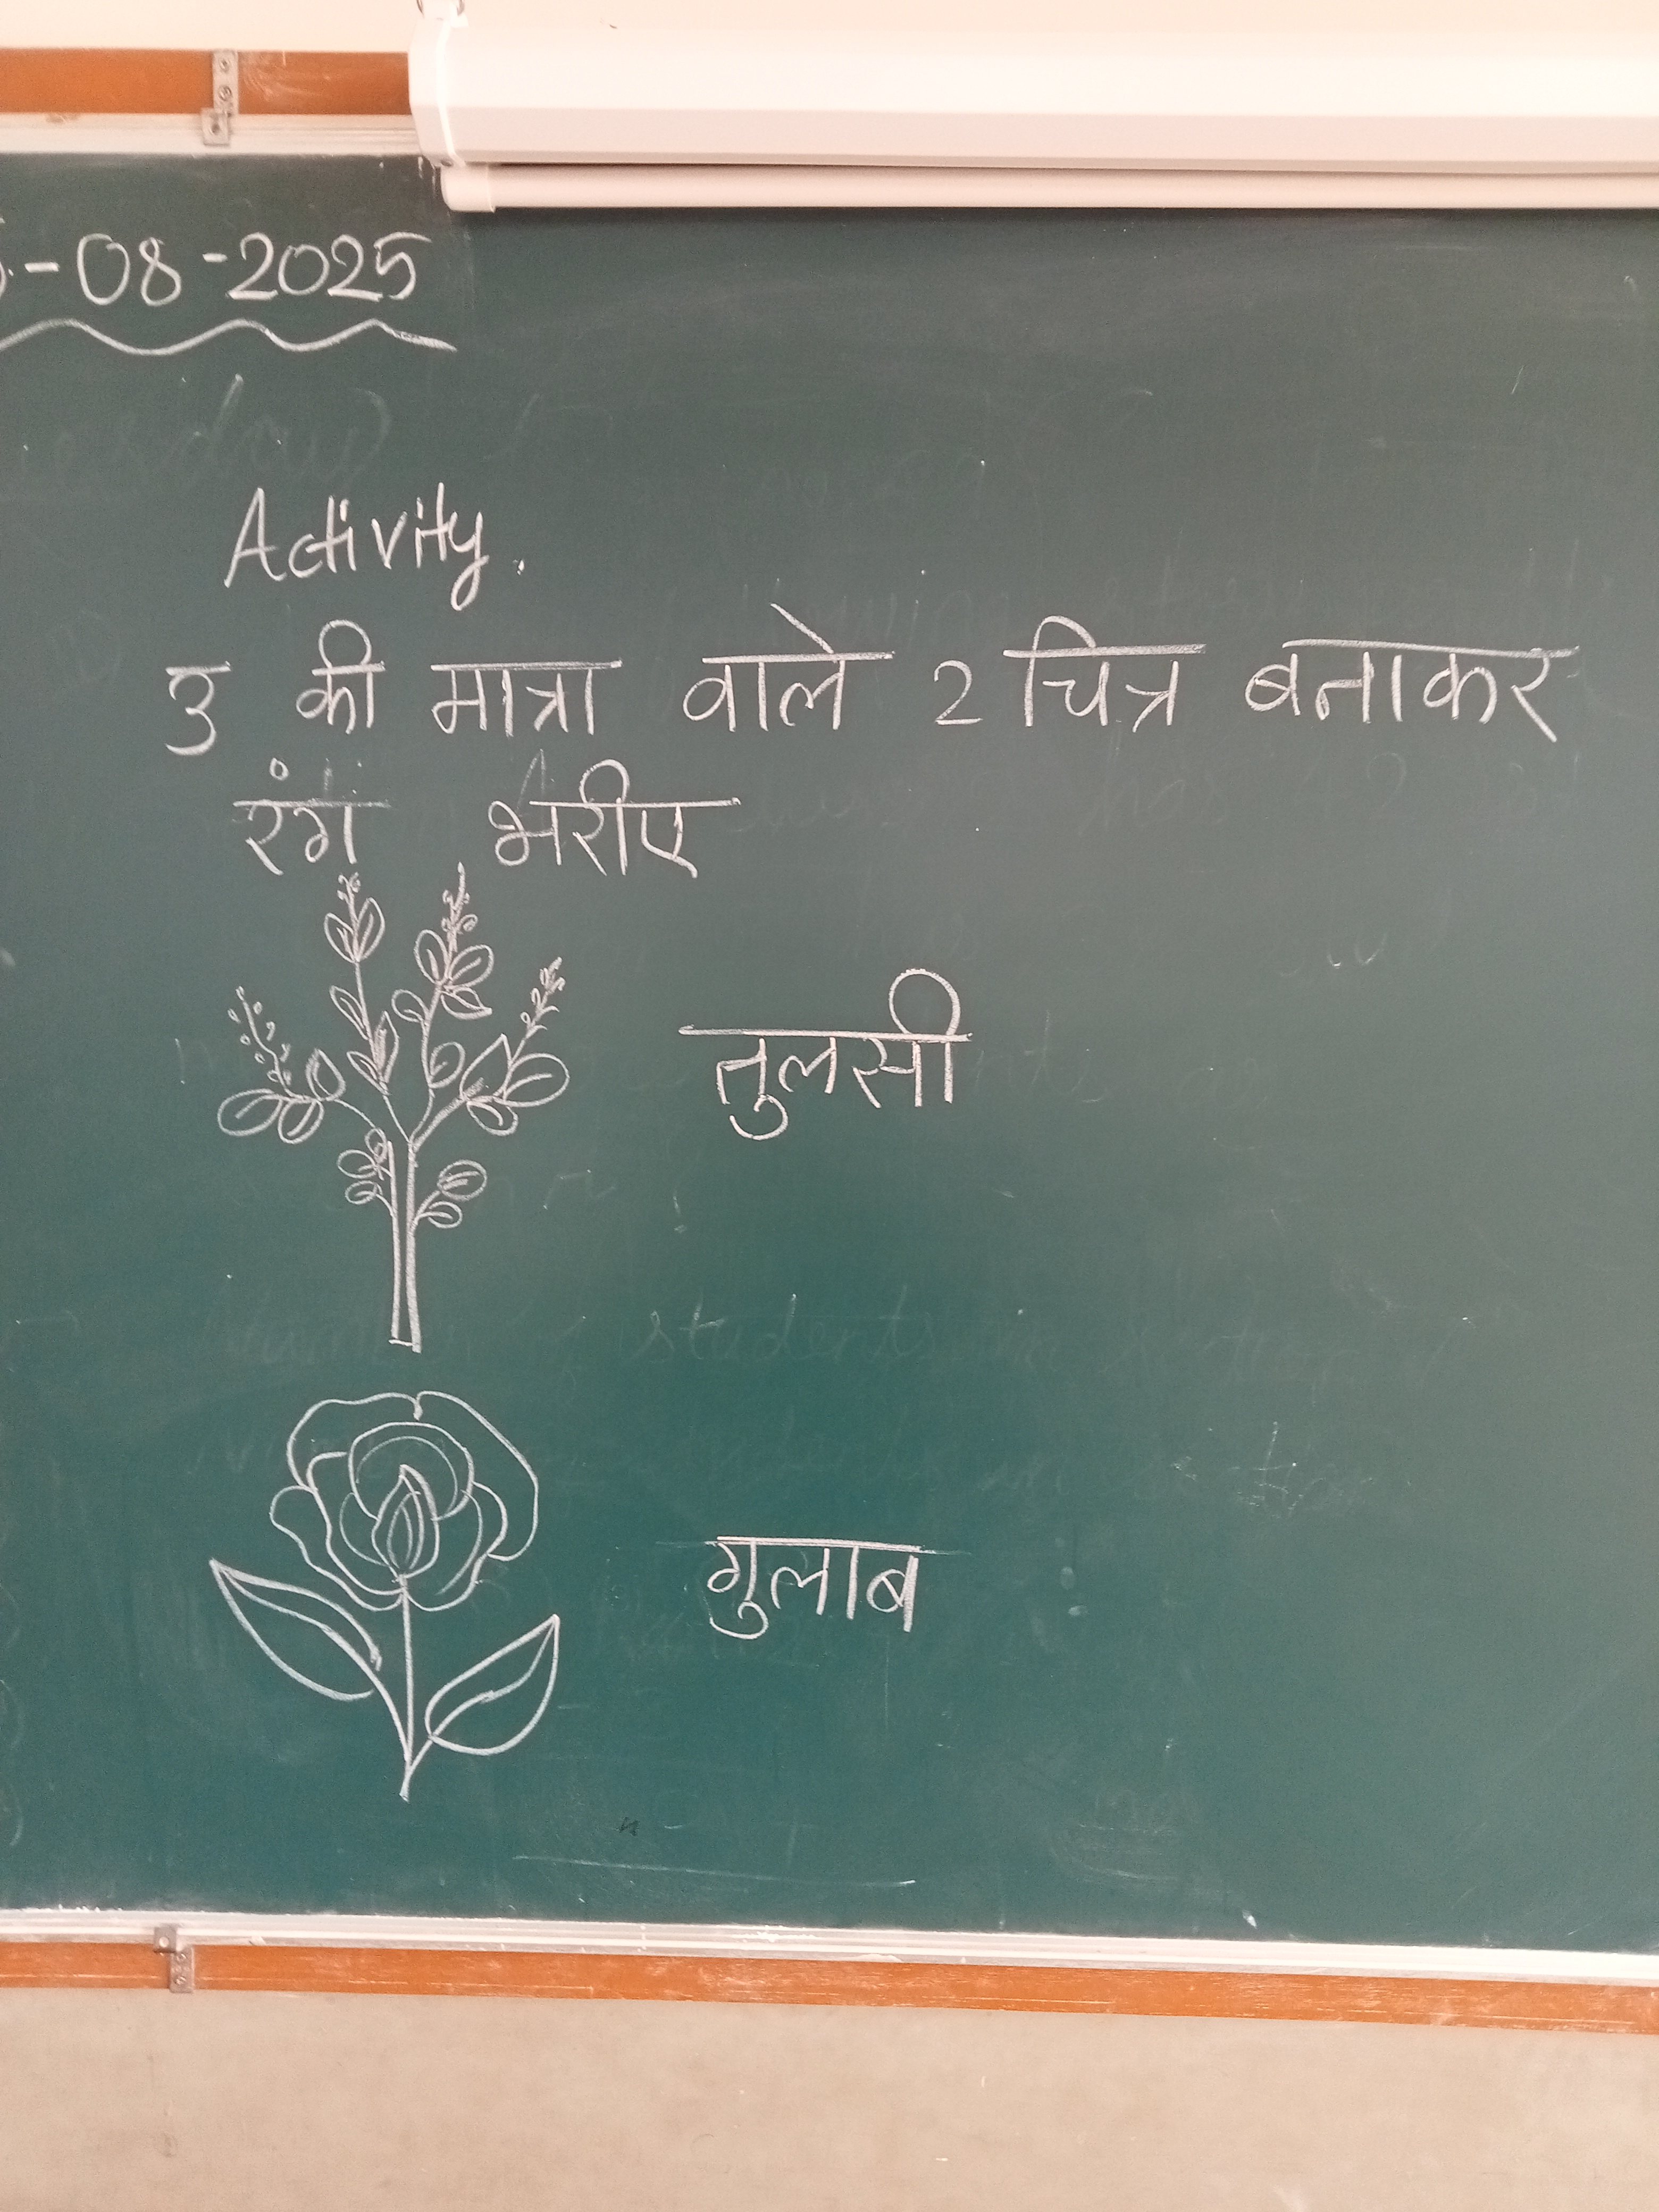 -08-2025
Activity.
उ की मात्रा वाले 2 चित्र बनाकर
रंग भरीए
तुलसी
गुलाब